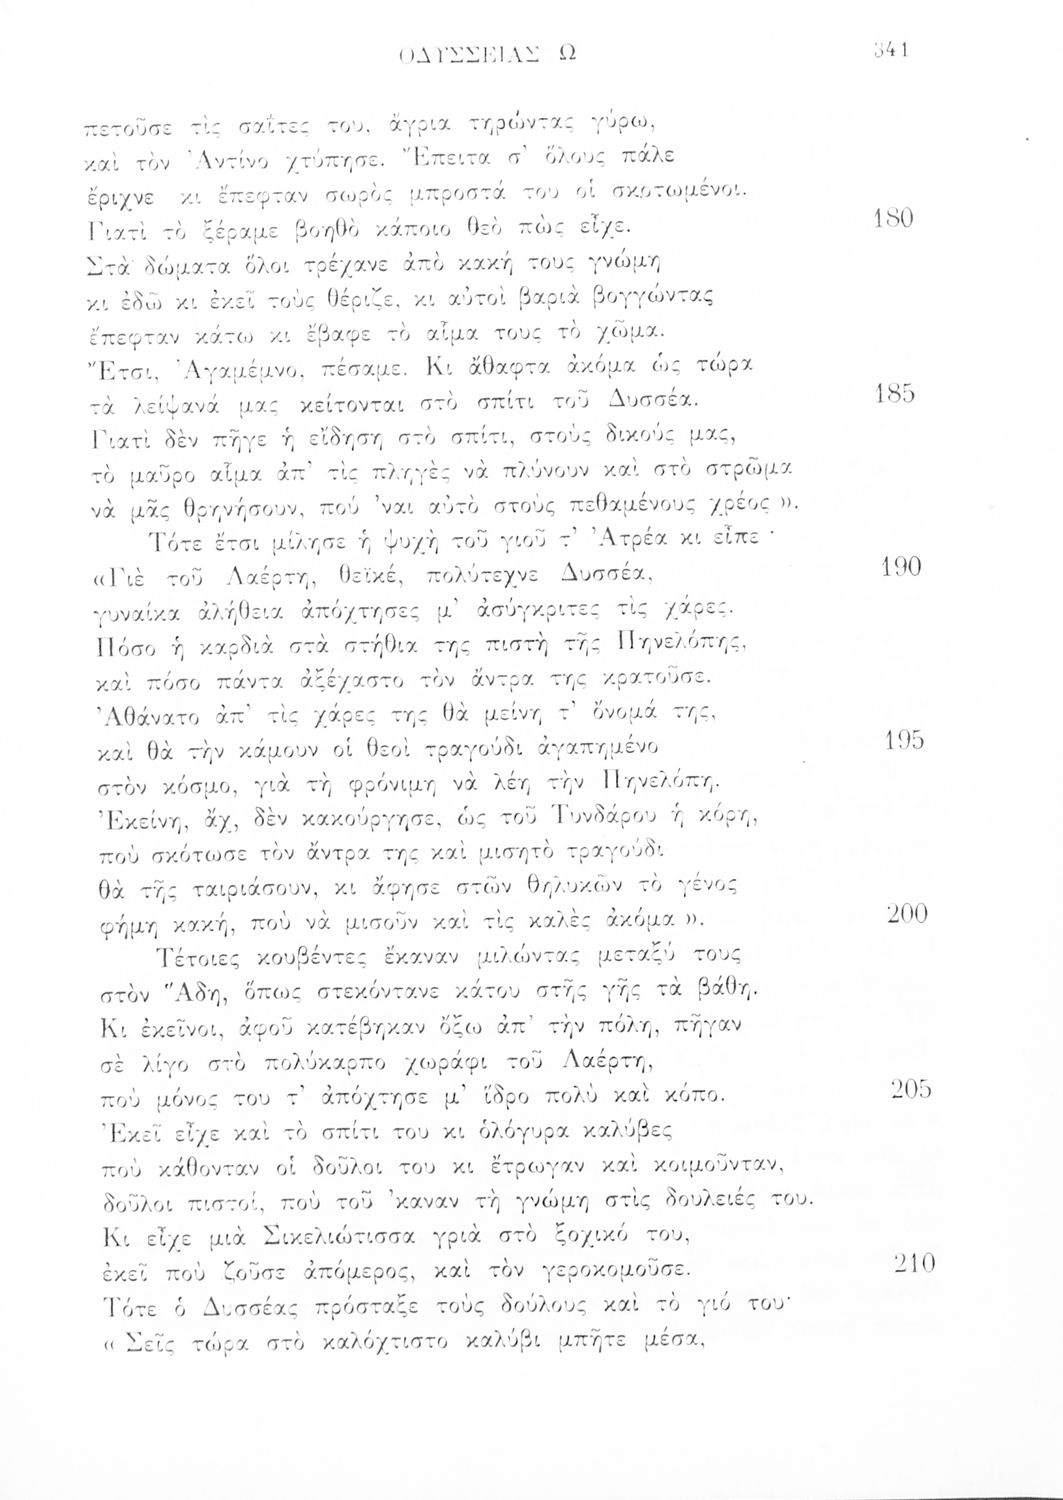 ΟΔΥΣΣΕΙΑΣ Ω 341
πετοῦσε τὶς σαΐτες του, ἄγρια τηρώντας γύρω,
καὶ τὸν Ἀντίνο χτύπησε. Ἔπειτα σ᾿ ὅλους πάλε
ἔριχνε κι ἔπεφταν σωρὸς μπροστά του οἱ σκοτωμένοι.
Γιατὶ τὸ ξέραμε βοηθὸ κάποιο θεὸ πὼς εἶχε. 180
Στὰ δώματα ὅλοι τρέχανε ἀπὸ κακή τους γνώμη
κι ἐδῶ κι ἐκεῖ τοὺς θέριζε, κι αὐτοὶ βαριὰ βογγώντας
ἔπεφταν κάτω κι ἔβαφε τὸ αἷμα τους τὸ χῶμα.
Ἔτσι, Ἀγαμέμνο, πέσαμε. Κι ἄθαφτα ἀκόμα ὡς τώρα
τὰ λείψανά μας κείτονται στὸ σπίτι τοῦ Δυσσέα. 185
Γιατὶ δὲν πῆγε ἡ εἴδηση στὸ σπίτι, στοὺς δικούς μας,
τὸ μαῦρο αἷμα ἀπ᾿ τὶς πληγὲς νὰ πλύνουν καὶ στὸ στρῶμα
νὰ μᾶς θρηνήσουν, πού ᾿ναι αὐτὸ στοὺς πεθαμένους χρέος ».
Τότε ἔτσι μίλησε ἡ ψυχὴ τοῦ γιοῦ τ᾿ Ἀτρέα κι εἶπε ·
«Γιὲ τοῦ Λαέρτη, θεϊκέ, πολύτεχνε Δυσσέα, 190
γυναίκα ἀλήθεια ἀπόχτησες μ᾿ ἀσύγκριτες τὶς χάρες.
Πόσο ἡ καρδιὰ στὰ στήθια της πιστὴ τῆς Πηνελόπης,
καὶ πόσο πάντα ἀξέχαστο τὸν ἄντρα της κρατοῦσε.
Ἀθάνατο ἀπ᾿ τὶς χάρες της θὰ μείνη τ᾿ ὄνομά της,
καὶ θὰ τὴν κάμουν οἱ θεοὶ τραγούδι ἀγαπημένο 195
στὸν κόσμο, γιὰ τὴ φρόνιμη νὰ λέη τὴν Πηνελόπη.
Ἐκείνη, ἄχ, δὲν κακούργησε, ὡς τοῦ Τυνδάρου ἡ κόρη,
ποὺ σκότωσε τὸν ἄντρα της καὶ μισητὸ τραγούδι
θὰ τῆς ταιριάσουν, κι ἄφησε στῶν θηλυκῶν τὸ γένος
φήμη κακή, ποὺ νὰ μισοῦν καὶ τὶς καλὲς ἀκόμα ». 200
Τέτοιες κουβέντες ἔκαναν μιλώντας μεταξύ τους
στὸν Ἅδη, ὅπως στεκόντανε κάτου στῆς γῆς τὰ βάθη.
Κι ἐκεῖνοι, ἀφοῦ κατέβηκαν ὄξω ἀπ᾿ τὴν πόλη, πῆγαν
σὲ λίγο στὸ πολύκαρπο χωράφι τοῦ Λαέρτη,
ποὺ μόνος του τ᾿ ἀπόχτησε μ᾿ ἵδρο πολὺ καὶ κόπο. 205
Ἐκεῖ εἶχε καὶ τὸ σπίτι του κι ὁλόγυρα καλύβες
ποὺ κάθονταν οἱ δοῦλοι του κι ἔτρωγαν καὶ κοιμοῦνταν,
δοῦλοι πιστοί, ποὺ τοῦ ᾿καναν τὴ γνώμη στὶς δουλειές του.
Κι εἶχε μιὰ Σικελιώτισσα γριὰ στὸ ξοχικό του,
ἐκεῖ ποὺ ζοῦσε ἀπόμερος, καὶ τὸν γεροκομοῦσε. 210
Τότε ὁ Δυσσέας πρόσταξε τοὺς δούλους καὶ τὸ γιό του·
« Σεῖς τώρα στὸ καλόχτιστο καλύβι μπῆτε μέσα,